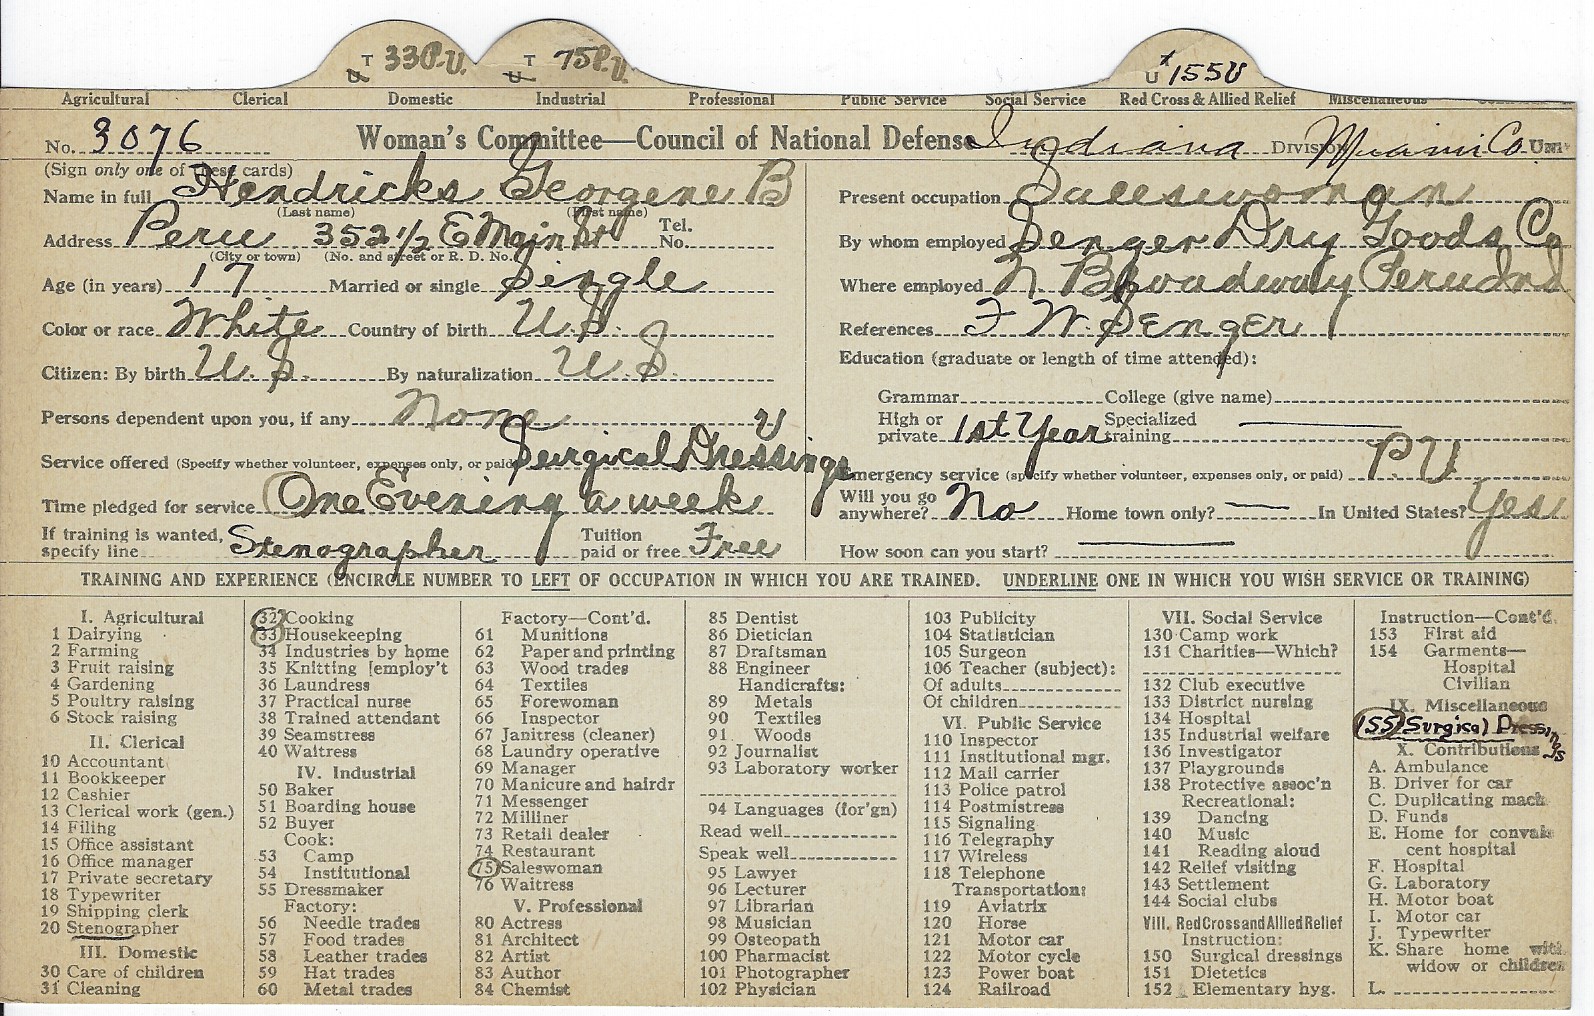 T 33 P.U. T 75 P.U. U 155 U
Agricultural Clerical Domestic Industrial Professional Public Service Social Service Red Cross & Allied Relief Miscellaneous
No. 3076 Woman's Committee—Council of National Defense Indiana Division Miami Co Unit
(Sign only one of these cards)
Name in full Hendricks Georgene B
(Last name) (First name)
Address Peru 352 1/2 E Main St Tel. No.
(City or town) (No. and street or R. D. No.)
Age (in years) 17 Married or single Single
Color or race White Country of birth U.S.
Citizen: By birth U.S. By naturalization U.S.
Persons dependent upon you, if any None
Service offered (Specify whether volunteer, expenses only, or paid) Surgical Dressings V
Time pledged for service One Evening a week
If training is wanted, specify line Stenographer Tuition paid or free Free
Present occupation Saleswoman
By whom employed Senger Dry Goods Co
Where employed N. Broadway Peru Ind
References F W. Senger
Education (graduate or length of time attended):
Grammar College (give name)
High or private 1st Year Specialized training
Emergency service (specify whether volunteer, expenses only, or paid) P.U
Will you go anywhere? No Home town only? — In United States? Yes
How soon can you start?
TRAINING AND EXPERIENCE (ENCIRCLE NUMBER TO LEFT OF OCCUPATION IN WHICH YOU ARE TRAINED. UNDERLINE ONE IN WHICH YOU WISH SERVICE OR TRAINING)
I. Agricultural
1 Dairying
2 Farming
3 Fruit raising
4 Gardening
5 Poultry raising
6 Stock raising
II. Clerical
10 Accountant
11 Bookkeeper
12 Cashier
13 Clerical work (gen.)
14 Filing
15 Office assistant
16 Office manager
17 Private secretary
18 Typewriter
19 Shipping clerk
20 Stenographer
III. Domestic
30 Care of children
31 Cleaning
32 Cooking
33 Housekeeping
34 Industries by home
35 Knitting [employ't
36 Laundress
37 Practical nurse
38 Trained attendant
39 Seamstress
40 Waitress
IV. Industrial
50 Baker
51 Boarding house
52 Buyer
Cook:
53 Camp
54 Institutional
55 Dressmaker
Factory:
56 Needle trades
57 Food trades
58 Leather trades
59 Hat trades
60 Metal trades
Factory—Cont'd.
61 Munitions
62 Paper and printing
63 Wood trades
64 Textiles
65 Forewoman
66 Inspector
67 Janitress (cleaner)
68 Laundry operative
69 Manager
70 Manicure and hairdr
71 Messenger
72 Milliner
73 Retail dealer
74 Restaurant
75 Saleswoman
76 Waitress
V. Professional
80 Actress
81 Architect
82 Artist
83 Author
84 Chemist
85 Dentist
86 Dietician
87 Draftsman
88 Engineer
Handicrafts:
89 Metals
90 Textiles
91 Woods
92 Journalist
93 Laboratory worker
94 Languages (for'gn)
Read well
Speak well
95 Lawyer
96 Lecturer
97 Librarian
98 Musician
99 Osteopath
100 Pharmacist
101 Photographer
102 Physician
103 Publicity
104 Statistician
105 Surgeon
106 Teacher (subject):
Of adults
Of children
VI. Public Service
110 Inspector
111 Institutional mgr.
112 Mail carrier
113 Police patrol
114 Postmistress
115 Signaling
116 Telegraphy
117 Wireless
118 Telephone
Transportation:
119 Aviatrix
120 Horse
121 Motor car
122 Motor cycle
123 Power boat
124 Railroad
VII. Social Service
130 Camp work
131 Charities—Which?
132 Club executive
133 District nursing
134 Hospital
135 Industrial welfare
136 Investigator
137 Playgrounds
138 Protective assoc'n
Recreational:
139 Dancing
140 Music
141 Reading aloud
142 Relief visiting
143 Settlement
144 Social clubs
VIII. Red Cross and Allied Relief
Instruction:
150 Surgical dressings
151 Dietetics
152 Elementary hyg.
Instruction—Cont'd.
153 First aid
154 Garments—
Hospital
Civilian
IX. Miscellaneous
155 Surgical Dressings
X. Contributions
A. Ambulance
B. Driver for car
C. Duplicating mach
D. Funds
E. Home for convales
cent hospital
F. Hospital
G. Laboratory
H. Motor boat
I. Motor car
J. Typewriter
K. Share home with
widow or children
L.